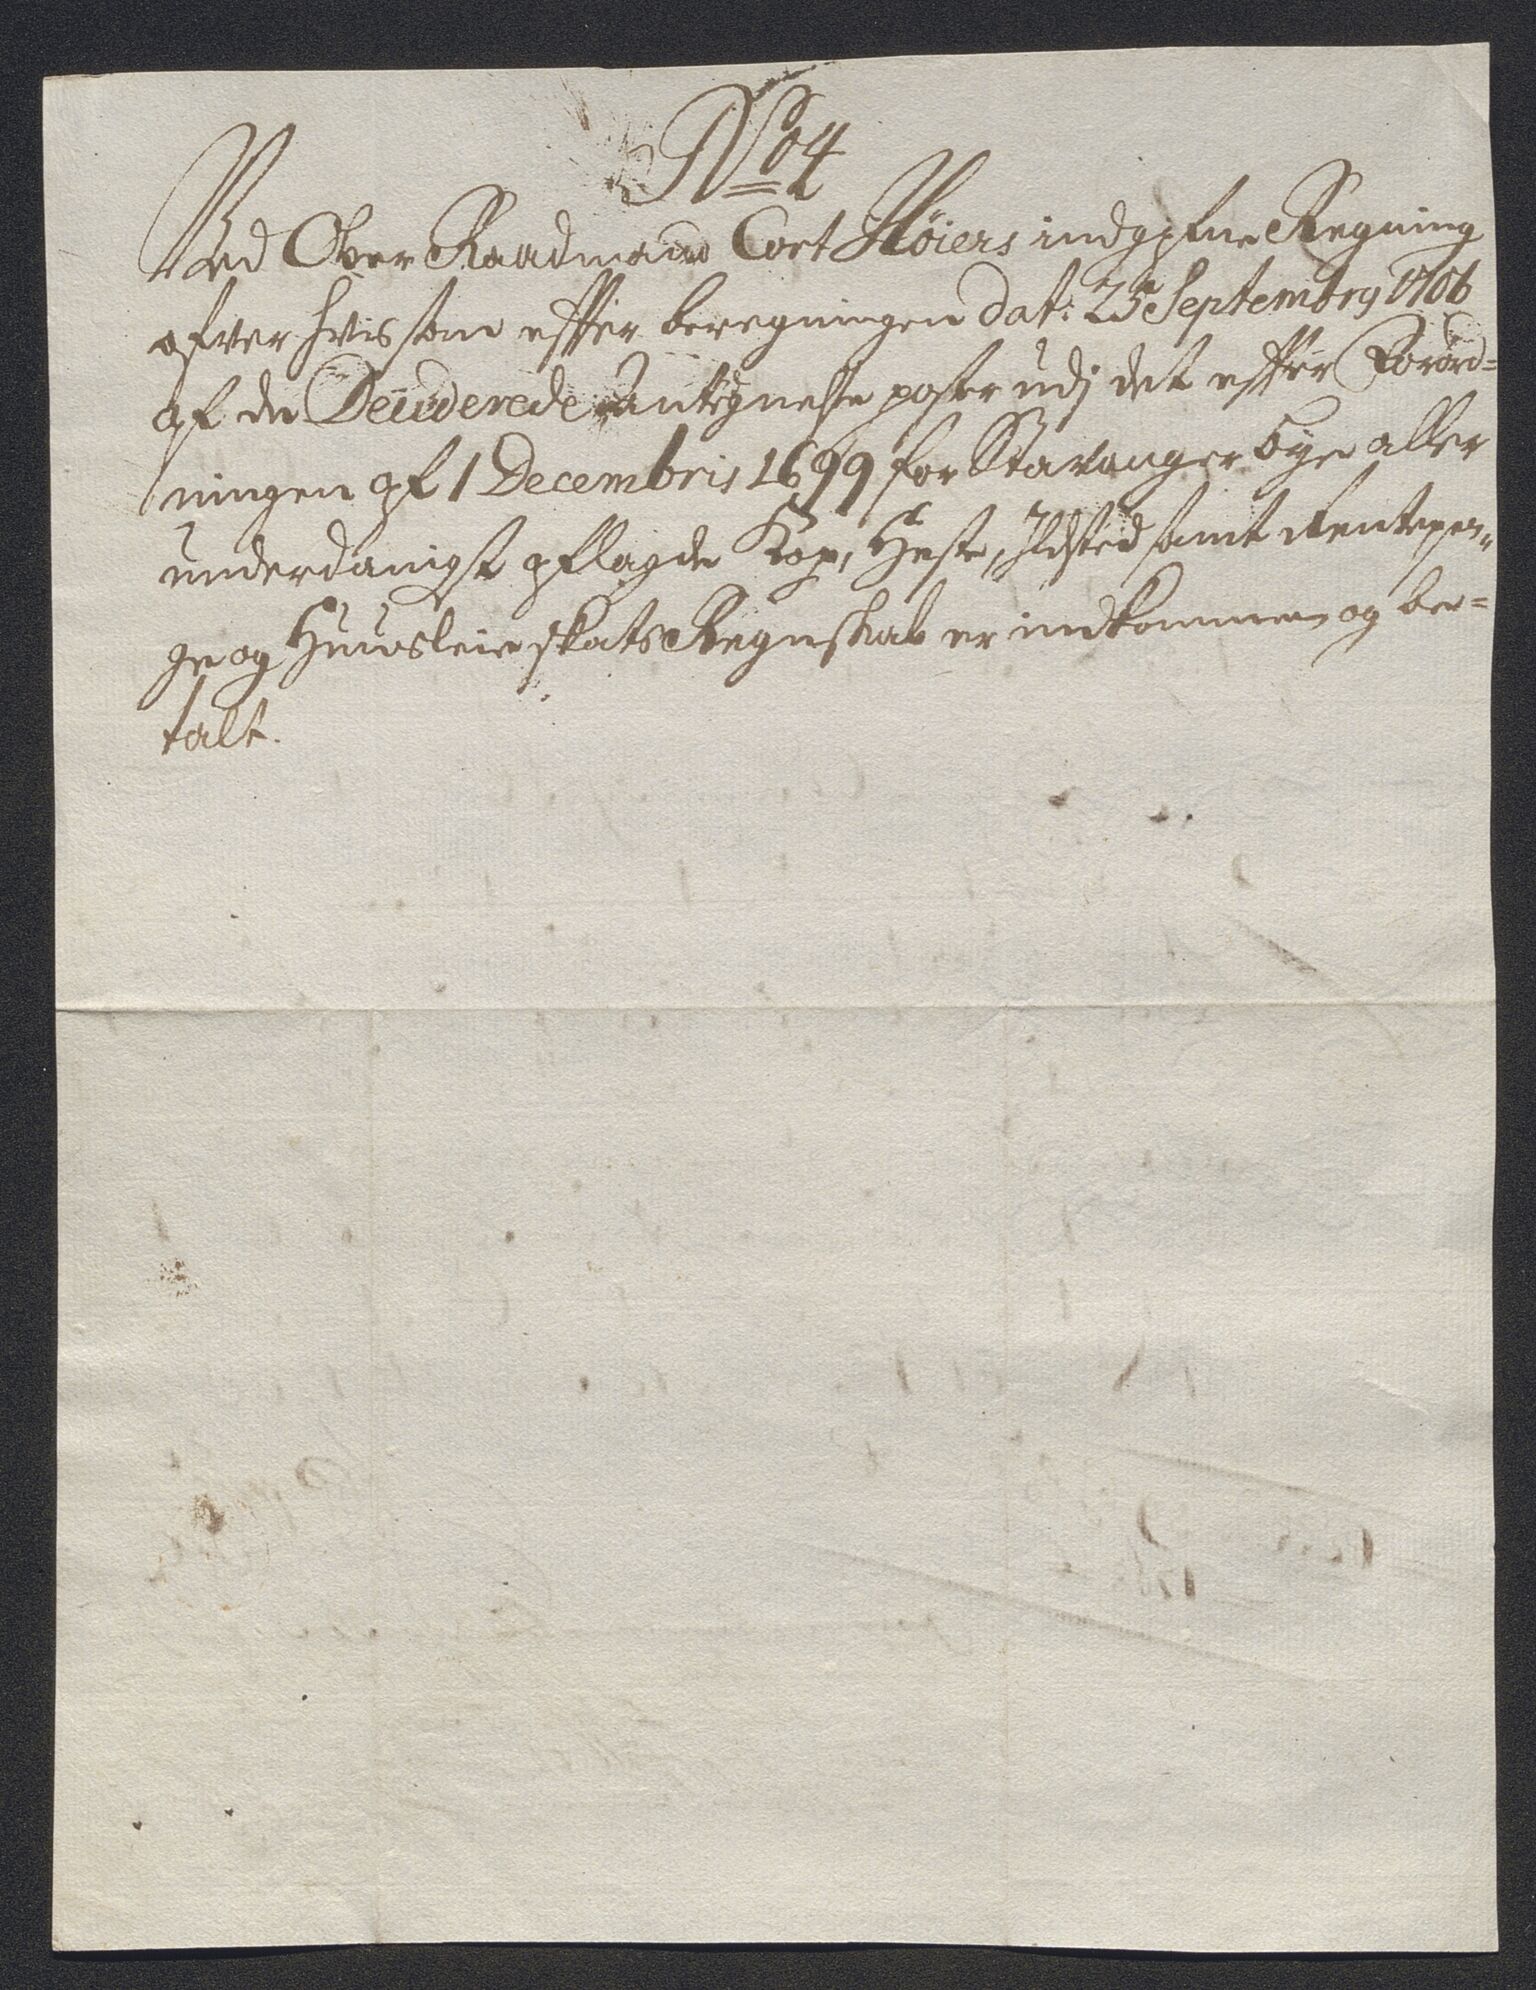 No 4
Ved Over Raadmand Cort Höiers indgifne Regning
ofver hvis som effter beregningen dat: 25 Septembry 1706
af de Deciderede Antegnelse poster udj det effter Forord=
ningen af 1 Decembris 1699 for Stavanger bye aller
underdanigst aflagde Kop, Heste, Ildsted samt Rentepen„
ge og Huusleie skats Regnskab er indkommen og be=
talt.